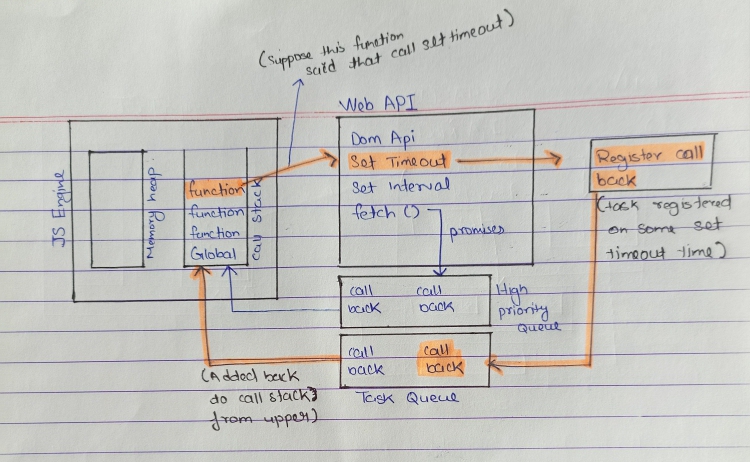 (suppose this function
said that call set timeout)
Web API
JS Engine
Memory heap.
function
function
function
Global
call stack
Dom Api
Set Timeout
Set Interval
fetch ()
promises
Register call
back
(task registered
on some set
timeout time)
call call
back back
High
priority
Queue
call call
back back
Task Queue
(Added back
to call stack
from upper)